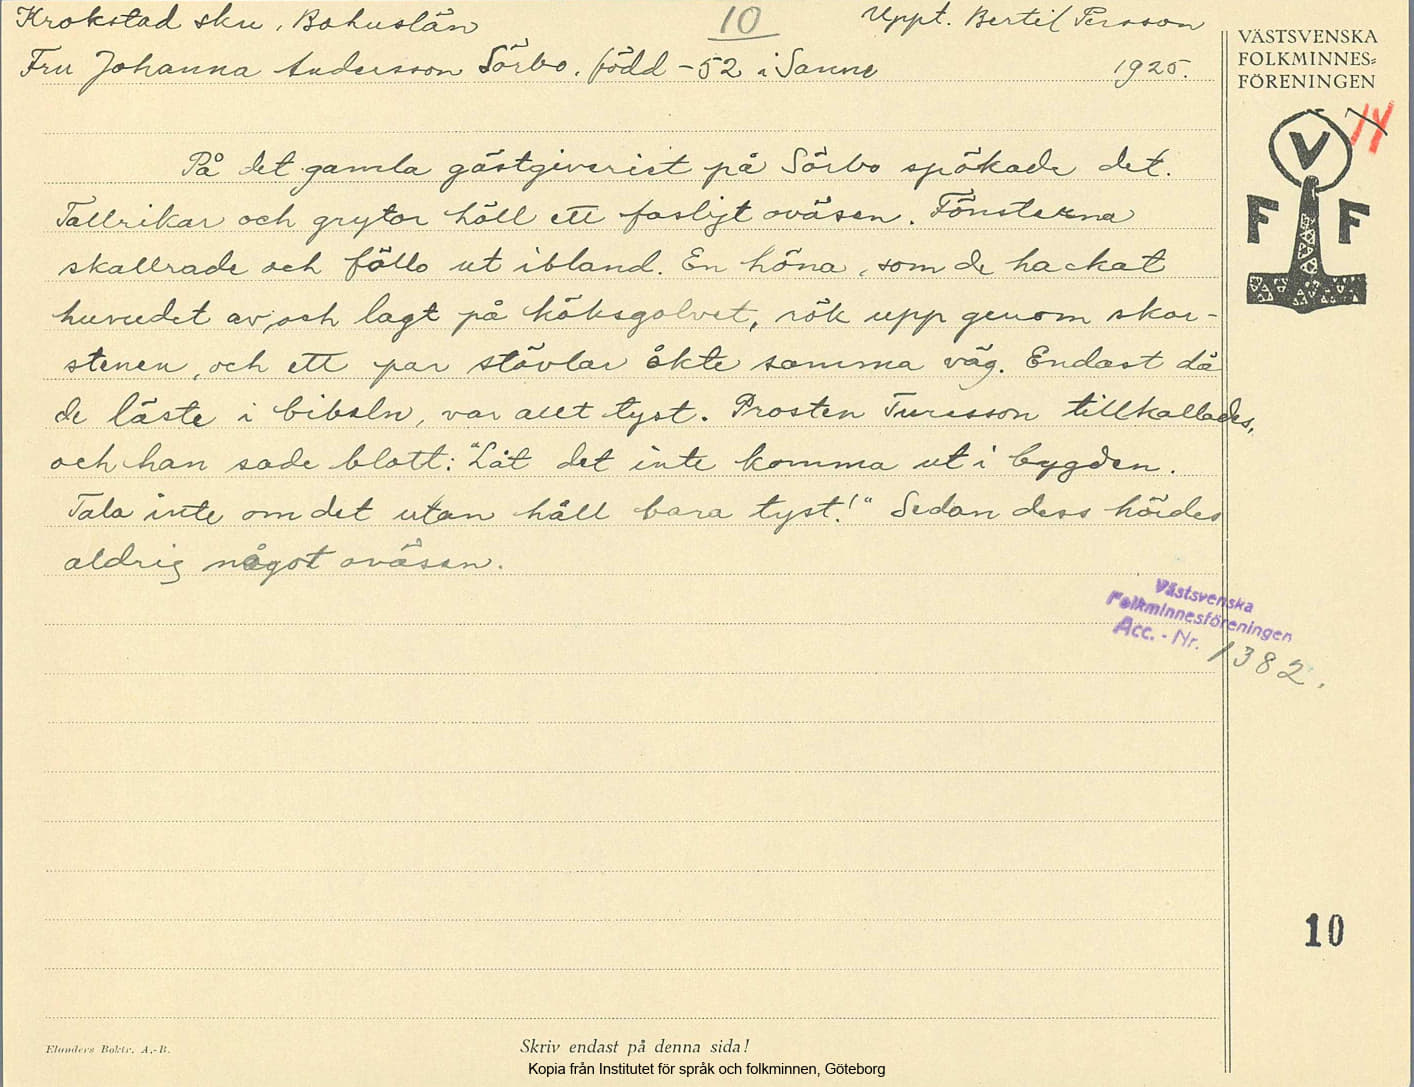 Krokstad sku, Bohuslän
10
Uppt. Bertil Persson
Fru Johanna Andersson Sörbo. född -52 i Sanne
1925.
VÄSTSVENSKA
FOLKMINNES=
FÖRENINGEN
14
V
F F
På det gamla gästgiveriet på Sörbo spökade det.
Tallrikar och grytor höll ett fasligt oväsen. Fönsterna
skallrade och föllo ut ibland. En höna, som de hackat
huvudet av, och lagt på köksgolvet, rök upp genom skor-
stenen, och ett par stövlar åkte samma väg. Endast då
de läste i bibeln, var allt tyst. Prosten Turesson tillkallades,
och han sade blott: "Låt det inte komma ut i bygden.
Tala inte om det utan håll bara tyst!" Sedan dess hördes
aldrig något oväsen.
Västsvenska
Folkminnesföreningen
Acc. - Nr. 1382.
10
Elanders Boktr. A.-B.
Skriv endast på denna sida!
Kopia från Institutet för språk och folkminnen, Göteborg